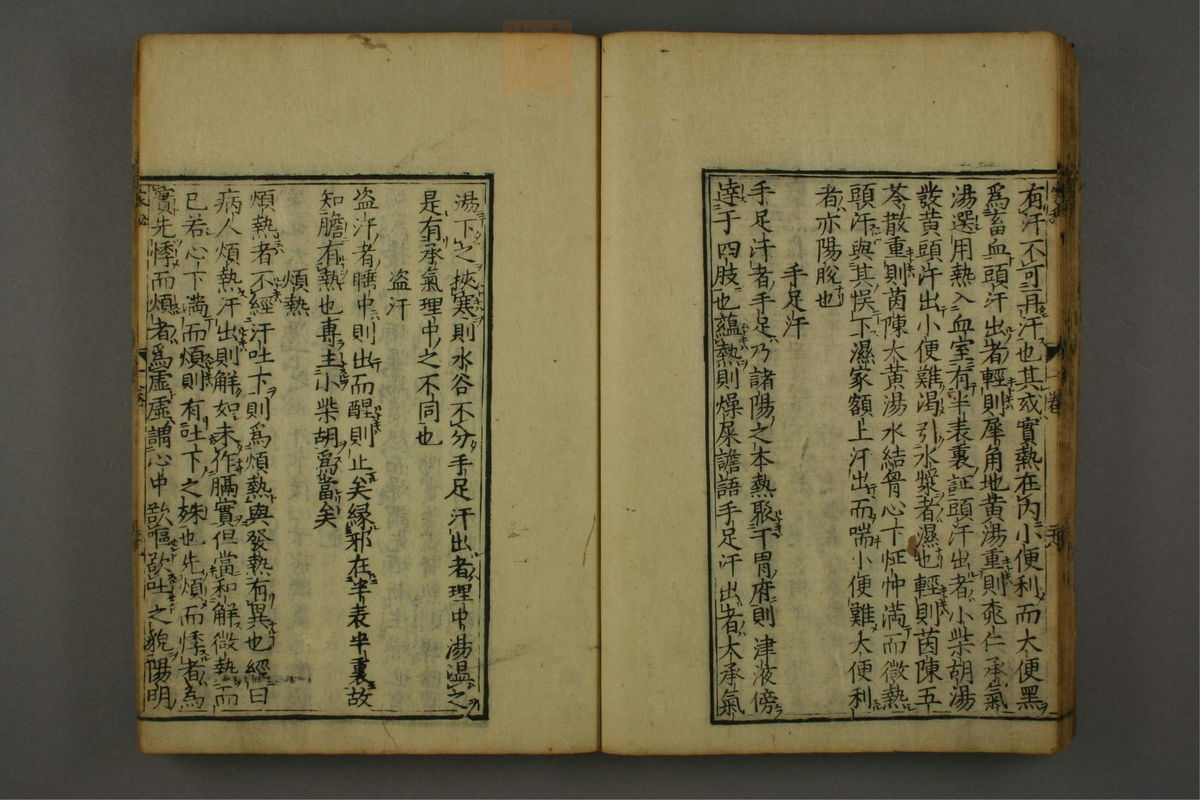 有汗不可再汗也其或實熱在內小便利而大便黑
爲畜血頭汗出者輕則犀角地黃湯重則桃仁承氣
湯選用熱入血室有半表裏証頭汗出者小柴胡湯
發黃頭汗出小便難渴引水漿者濕也輕則茵陳五
苓散重則茵陳大黃湯水結胷心下怔忡滿而微熱
頭汗與其悞下濕家額上汗出而喘小便難大便利
者亦陽脫也
手足汗
手足汗者手足乃諸陽之本熱聚于胃府則津液傍
達于四肢也蘊熱則燥屎譫語手足汗出者大承氣
湯下之挾寒則水谷不分手足汗出者理中湯溫之
是有承氣理中之不同也
盗汗
盗汗者睡中則出而醒則止矣緣邪在半表半裏故
知膽有熱也專主小柴胡爲當矣
煩熱
煩熱者不經汗吐下則爲煩熱與發熱有異也經曰
病人煩熱汗出則解如未作膈實但當和解微熱而
已若心下滿而煩則有吐下之殊也先煩而悸者爲
實先悸而煩者爲虛虛謂心中欲嘔欲吐之貌陽明